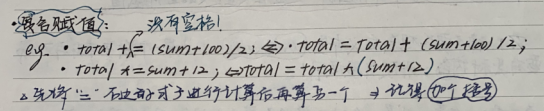 ·复合赋值: 没有空格!
eg. · total += (sum+100)/2; ⇔ · total = total + (sum+100)/2;
· total *= sum+12; ⇔ total = total * (sum+12)
△先将"="右边的式子进行计算后再算另一个 → 记得加个括号